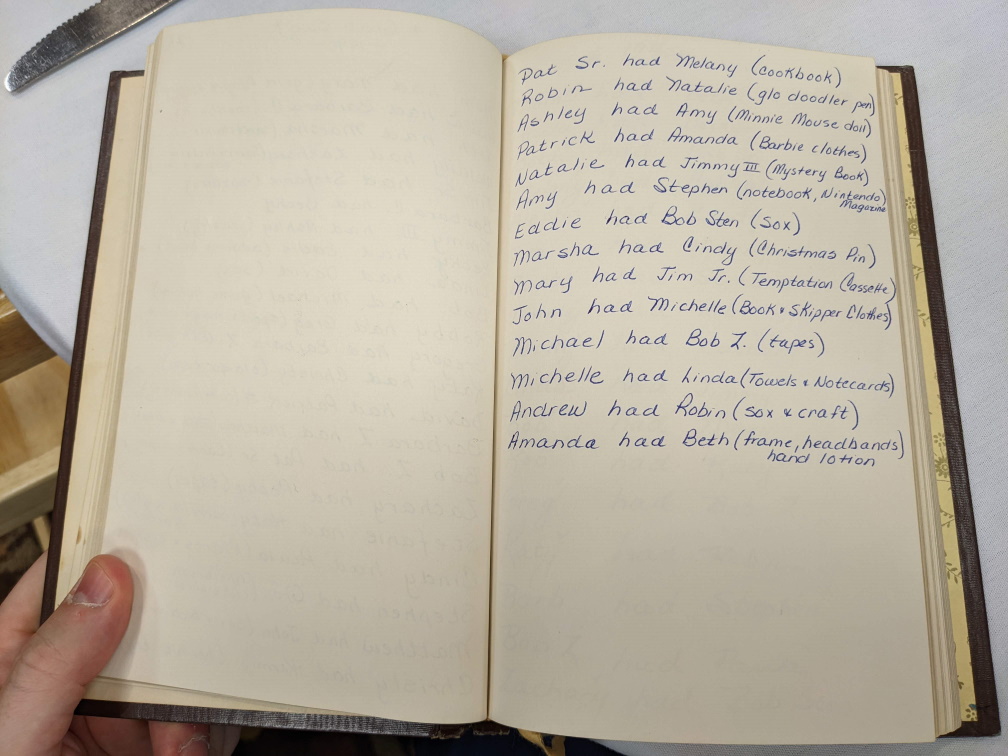 Pat Sr. had Melany (cookbook)
Robin had Natalie (glo doodler pen)
Ashley had Amy (Minnie Mouse doll)
Patrick had Amanda (Barbie clothes)
Natalie had Jimmy III (Mystery Book)
Amy had Stephen (notebook, Nintendo)
Magazine
Eddie had Bob Sten (sox)
Marsha had Cindy (Christmas Pin)
Mary had Jim Jr. (Temptation Cassette)
John had Michelle (Book & Skipper Clothes)
Michael had Bob Z. (tapes)
Michelle had Linda (Towels & Notecards)
Andrew had Robin (sox & craft)
Amanda had Beth (frame, headbands)
hand lotion